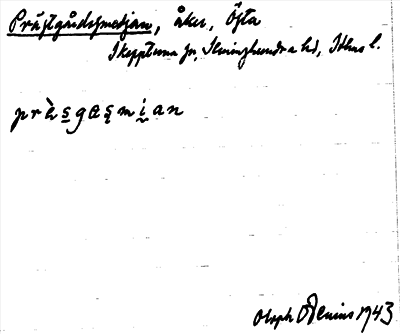 Prästgårdssmedjan, åker, Östa
Skepptuna sn, Seminghundra hd, Sthms l.
præ̀s̲gɷşmi̬an
Oloph Odenius 1943